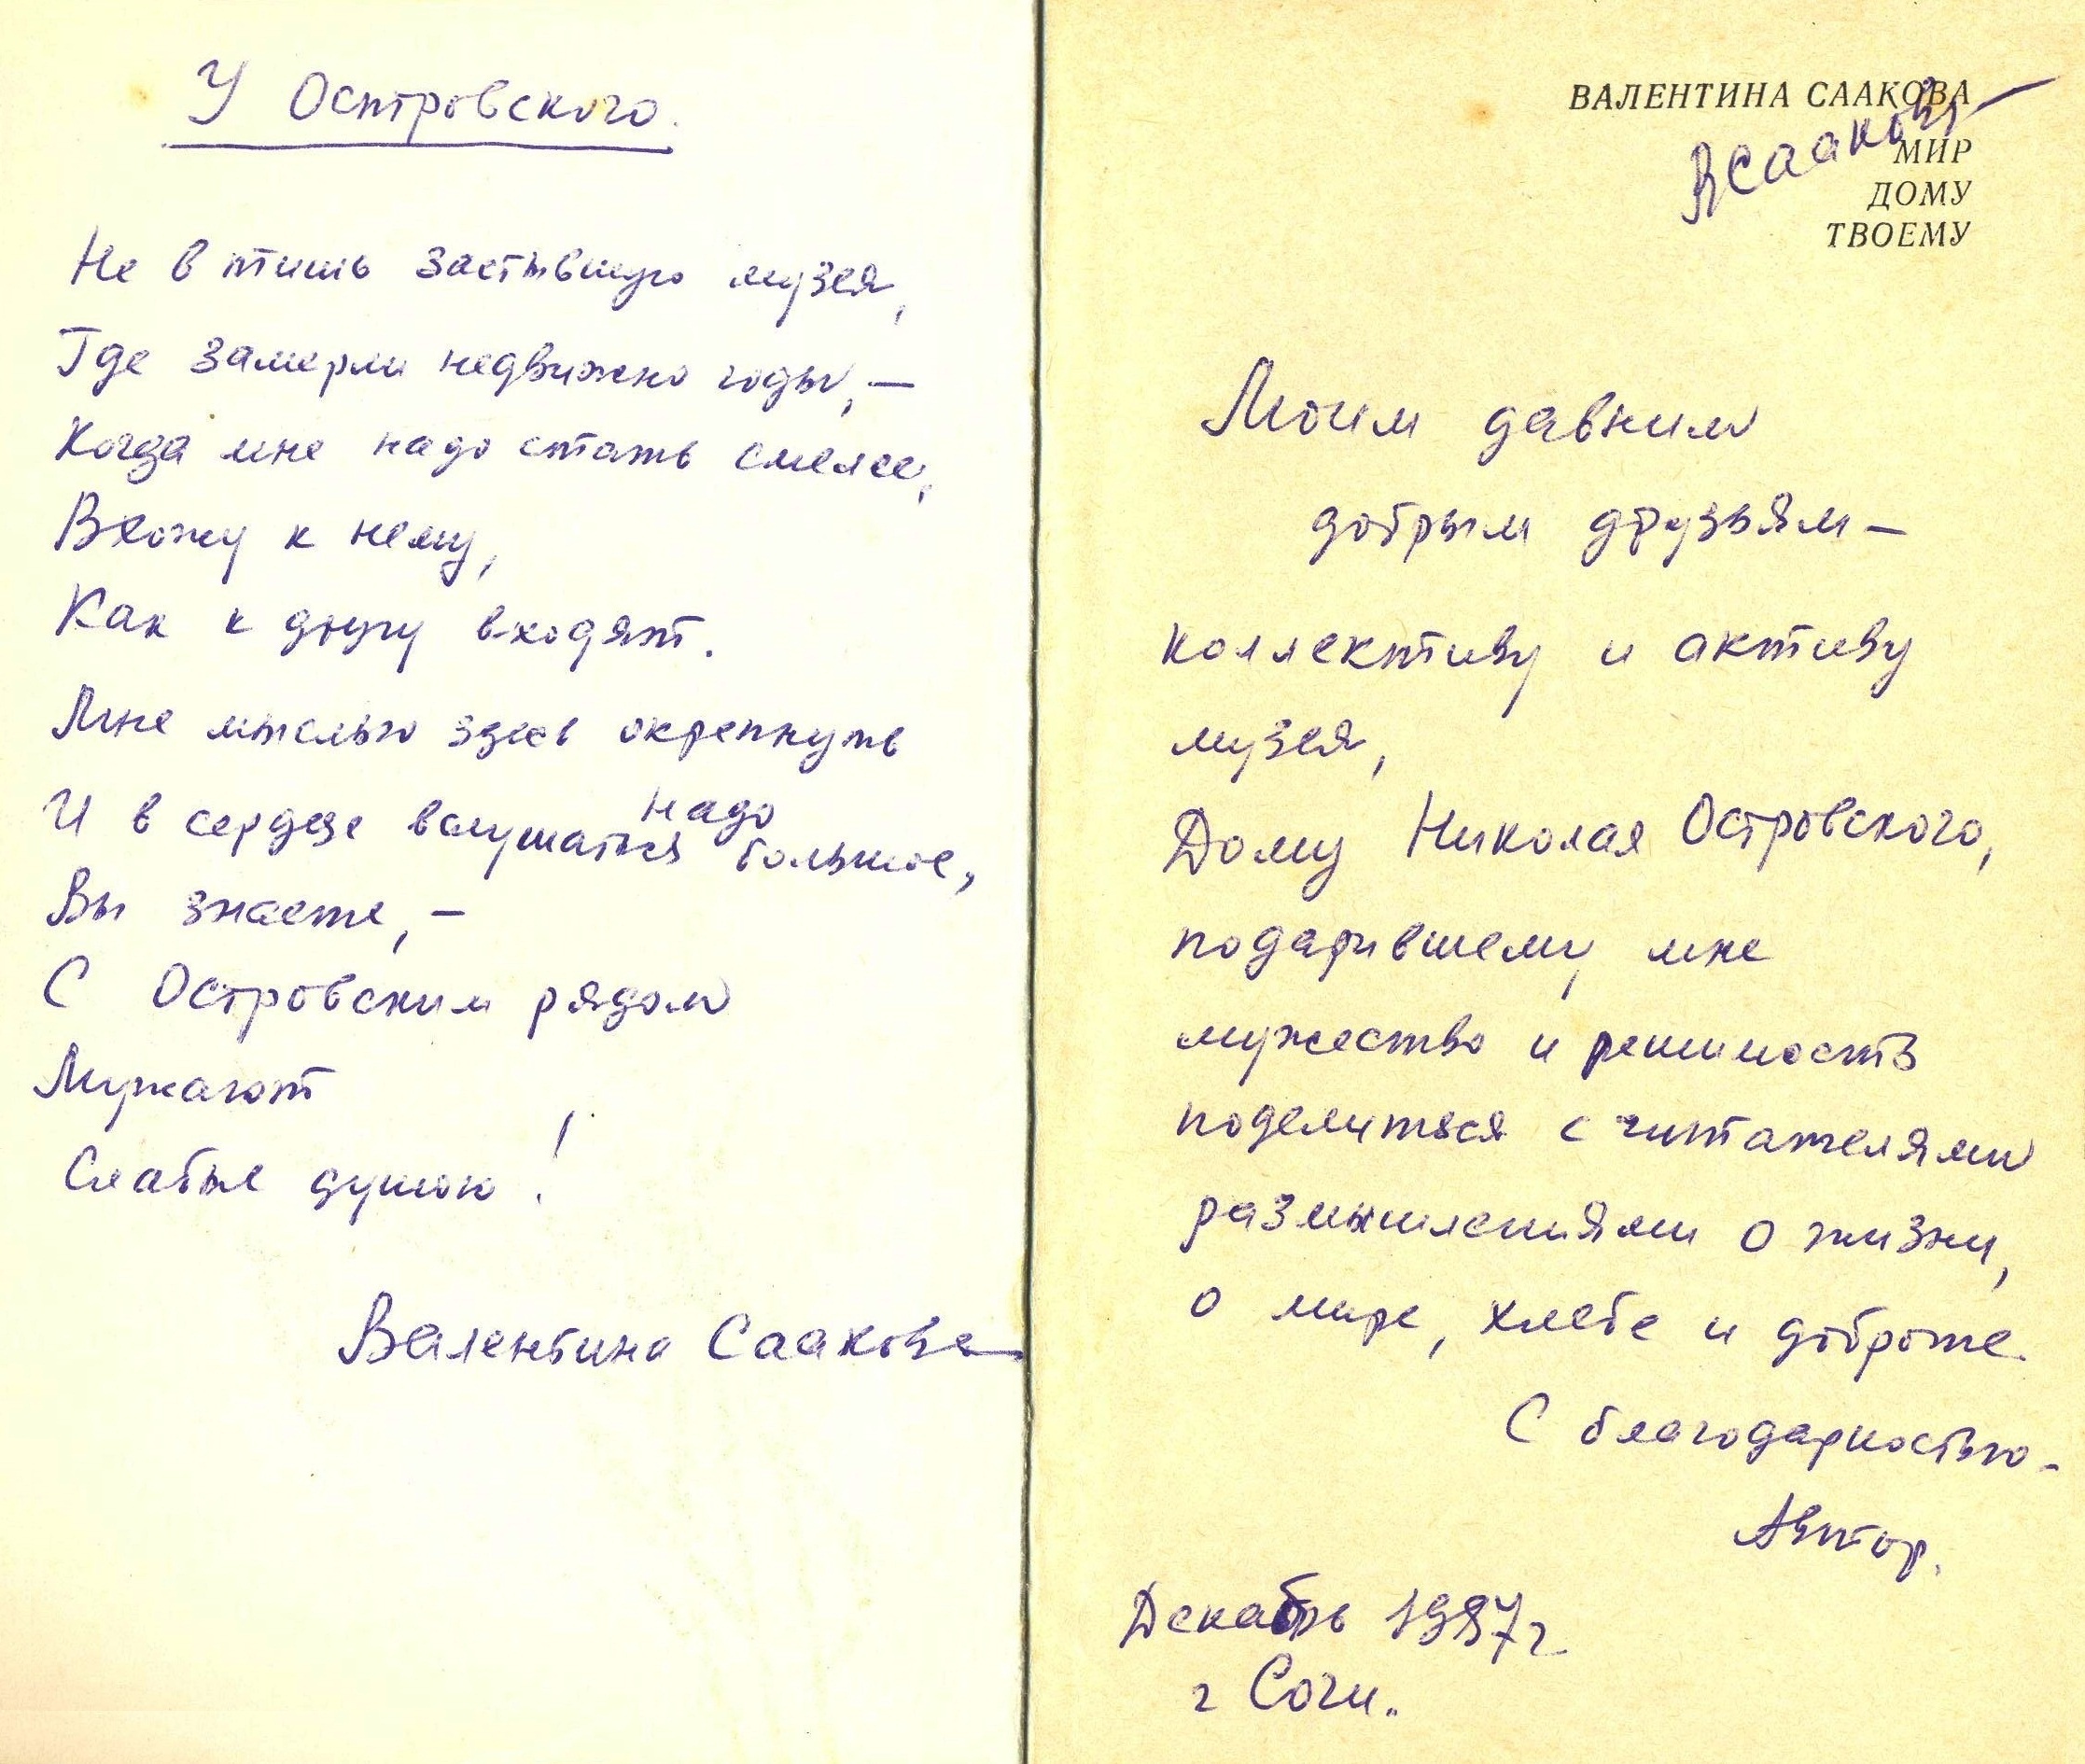 У Островского.
Не в тишь застывшую музея,
Где замерли недвижно годы, —
Когда мне надо стать смелее,
Вхожу к нему,
Как к другу входят.
Мне мыслью здесь окрепнуть
надо
И в сердце вслушаться большое,
Вы знаете, —
С Островским рядом
Мужают
Слабые душою!
Валентина Саакова
ВАЛЕНТИНА СААКОВА
ВСаакова
МИР
ДОМУ
ТВОЕМУ
Моим давним
добрым друзьям —
коллективу и активу
музея,
Дому Николая Островского,
подарившему мне
мужество и решимость
поделиться с читателями
размышлениями о жизни,
о мире, хлебе и доброте.
С благодарностью -
Автор.
Декабрь 1987 г.
г Сочи.